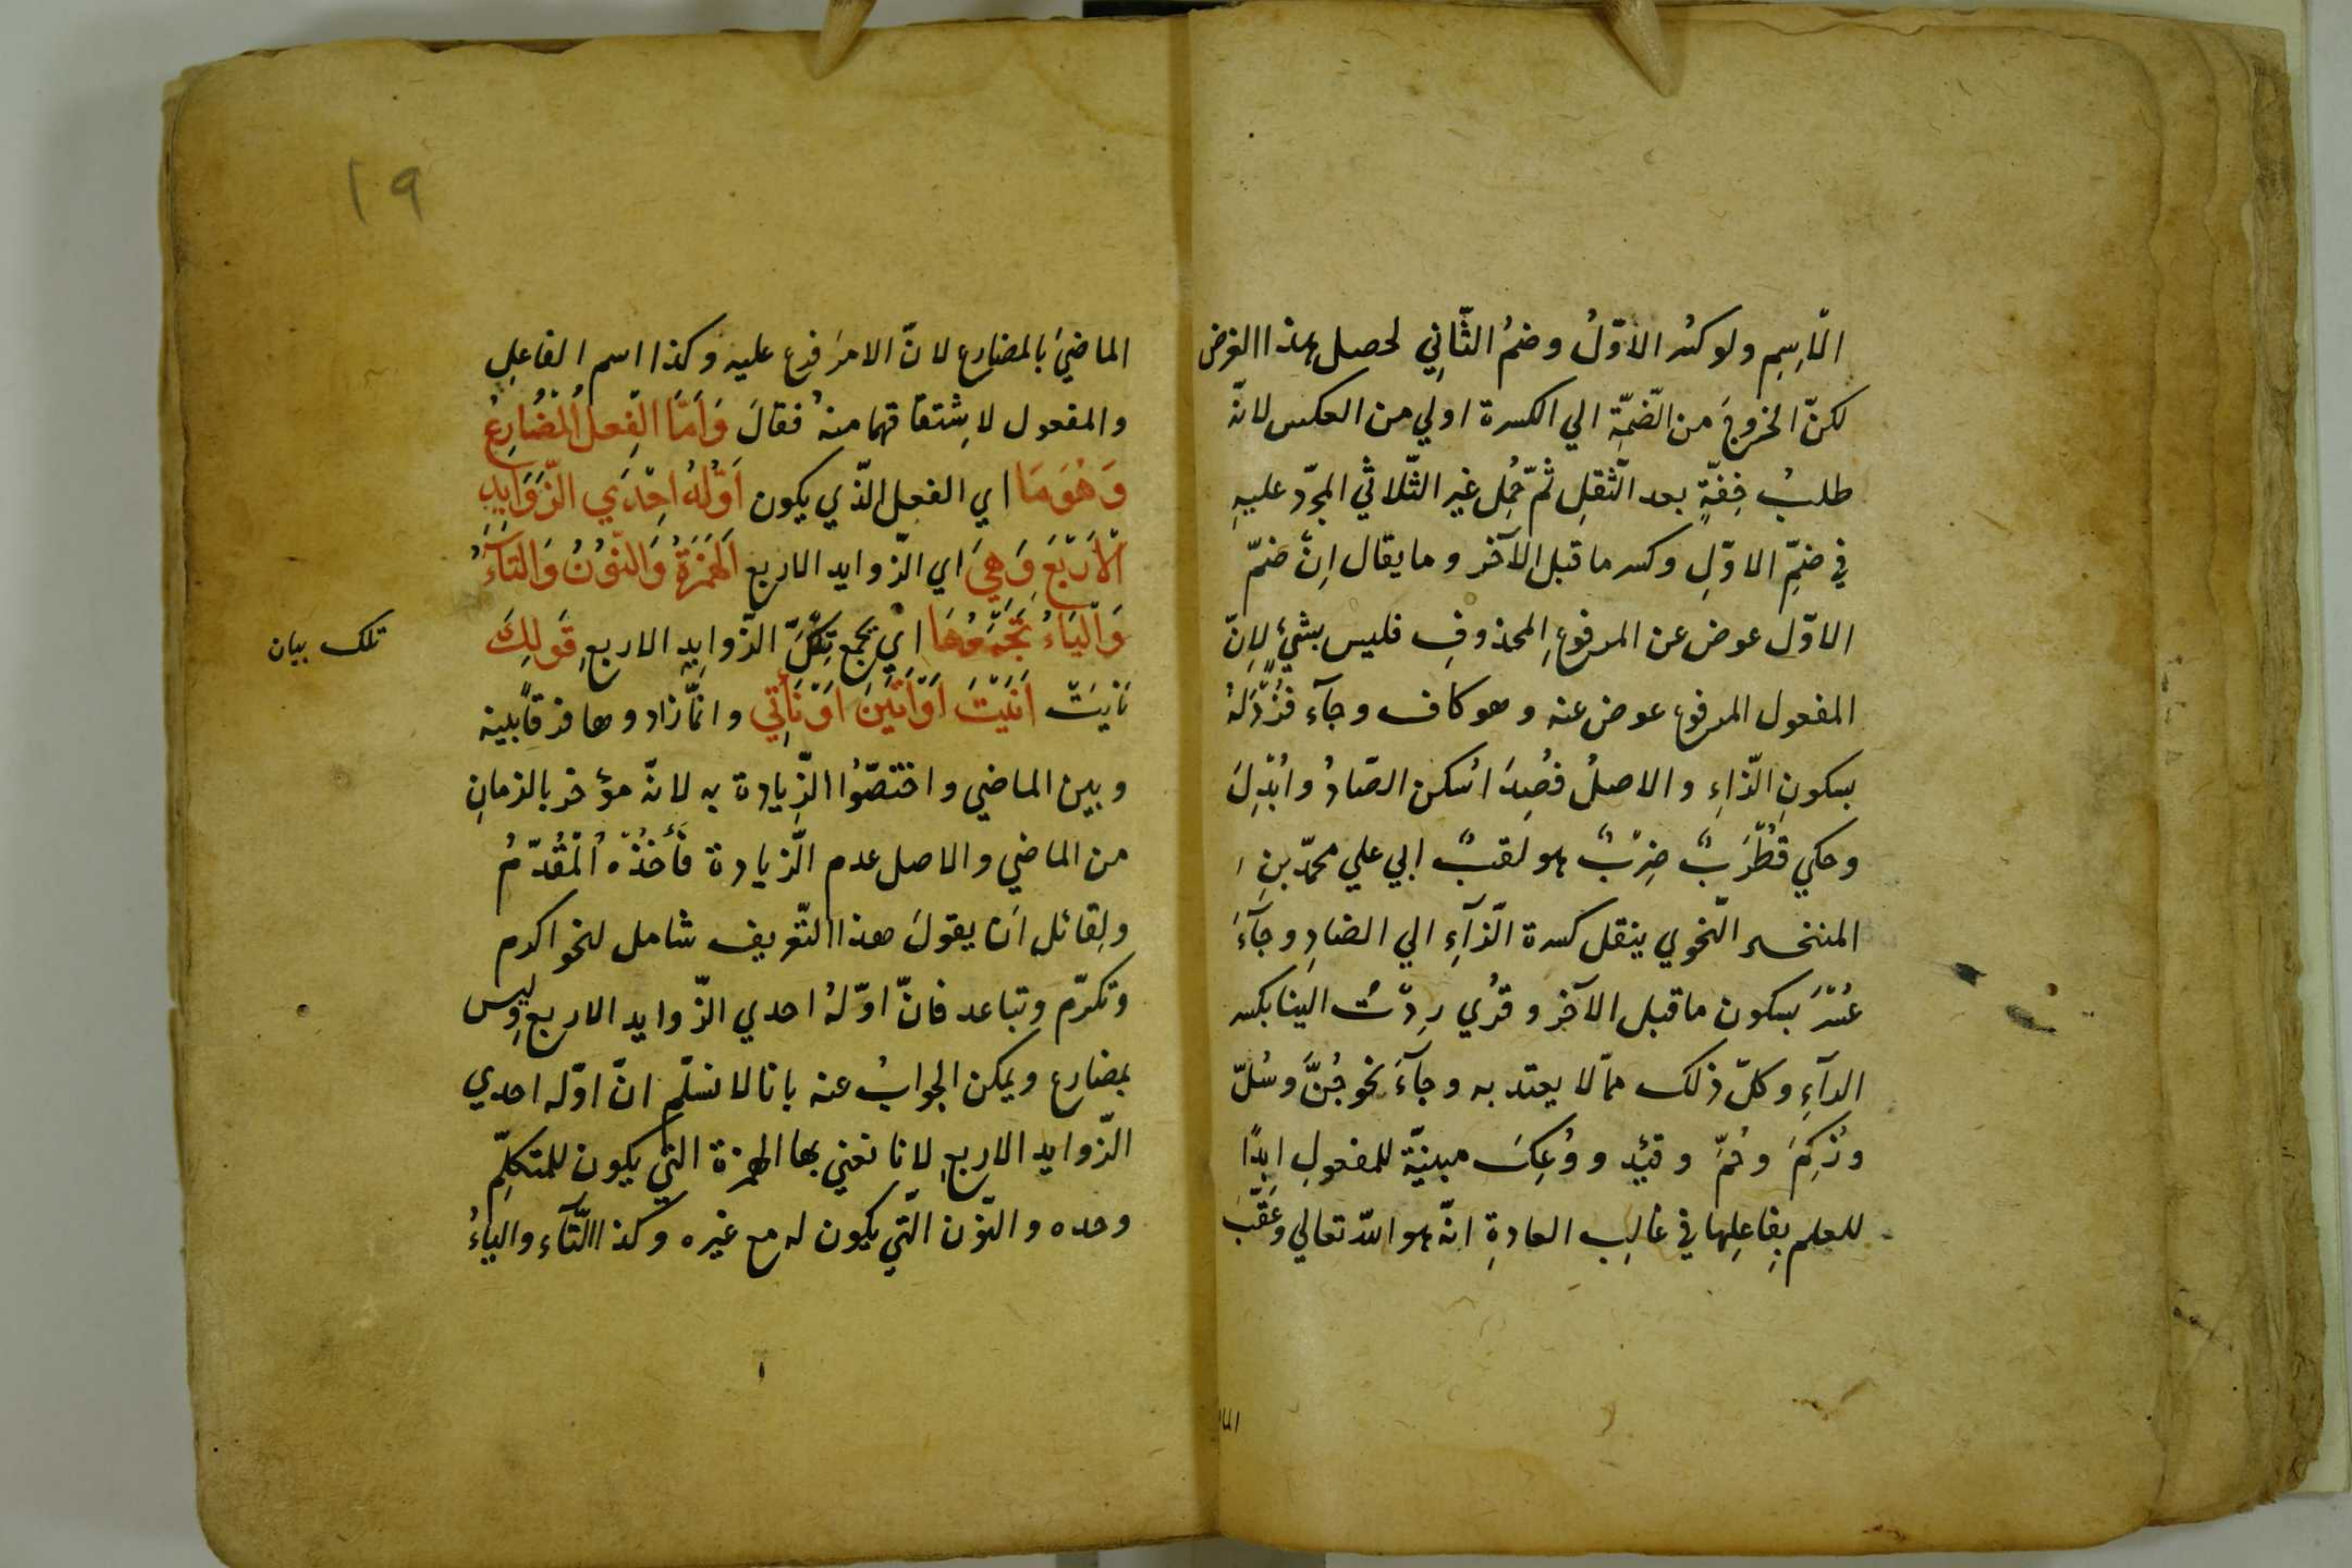 الاسِمِ ولو كسُر الاوّلُ وضمُ الثّانِي لحصل هذا الغرض
لكنّ الخروجَ من الضّمّةِ الي الكسرة اولي من العكس لانّه
طلبُ خِفّةٍ بعد الثّقلِ ثمّ حُمِل غير الثّلاثي المجرّد عليهِ
في ضمِّ الاوّلِ وكسر ما قبل الآخر وما يقال اِنّ ضمّ
الاوّل عوض عن المرفوعِ المحذوفِ فليس بشيءٍ لِانّ
المفعول المرفوع عوض عنه وهو كاف وجآء فُزْدَلهُ
بسكونِ الزّاءِ والاصلُ فُصِدَ اُسكن الصّادُ واُبْدِلَ
وحكي قُطْرَبٌ ضِرْبٌ هو لقبٌ ابي علي محمّد بنِ
المتنخسر النّحوي ينقل كسرة الرّآءِ الي الضادِ وجآءَ
عُسْرَ بسكون ما قبل الآخر وقرُي رِدّت الينا بكسر
الرآءِ وكلّ ذلك ممّا لا يعتد به وجآءَ نحو جُنَّ وسُلّ
وزُكِمَ وحُمّ وفُيِد ووُعِكَ مبنيّة للمفعولِ ابدًا
للعلم بِفاعِلِها في غالِبِ العادةِ انّه هو اللّه تعالي وعَقّبَ
الما
١٩
الماضيَ بالمضارع لانّ الامرَ فرع عليه وكذا اسم الفاعلِ
والمفعول لاِشتقاقهما منهُ فقالَ وَاَمّا الفِعلُ المُضَارِعُ
وَهُوَمَا اي الفعل الّذي يكون اَوّلُهُ اِحْدَي الزّوَايِدِ
الْاَرْبَعَ وَهِيَ اي الزّوايد الاربع اَلهَمْزَةُ وَالنّوُنُ وَالتّآءُ
وَالْيَاءُ تَجْمَعُهَا اي يجمع تِلكَ الزّوايِدِ الاربعِ قَولِكَ
تلك بيان
نَايَتْ اَنَيْتَ اَوْاَتَيْنَ اَوْنَأتِي وانّما زادوها فرقًا بينه
وبين الماضي واختصّوُا الزّيادة به لانّه مؤخر بالزمانِ
من الماضي والاصل عدم الزّيادة فأخذه المُقَدّمُ
ولِقائل اَن يقولَ هذا التّعريف شامل لنحو اكرم
وتكرّم وتباعد فانّ اوّلهُ احدي الزّوايد الاربعِ وليس
بمضارع ويمكن الجوابُ عنه بانا لا نسلّم انّ اوّله احدي
الزّوايد الاربعِ لانا نعني بها الهمزة التي يكون للمتكلِّم
وحده والنّون التّي يكون له مع غيره وكذا التّآءِ والياءُ